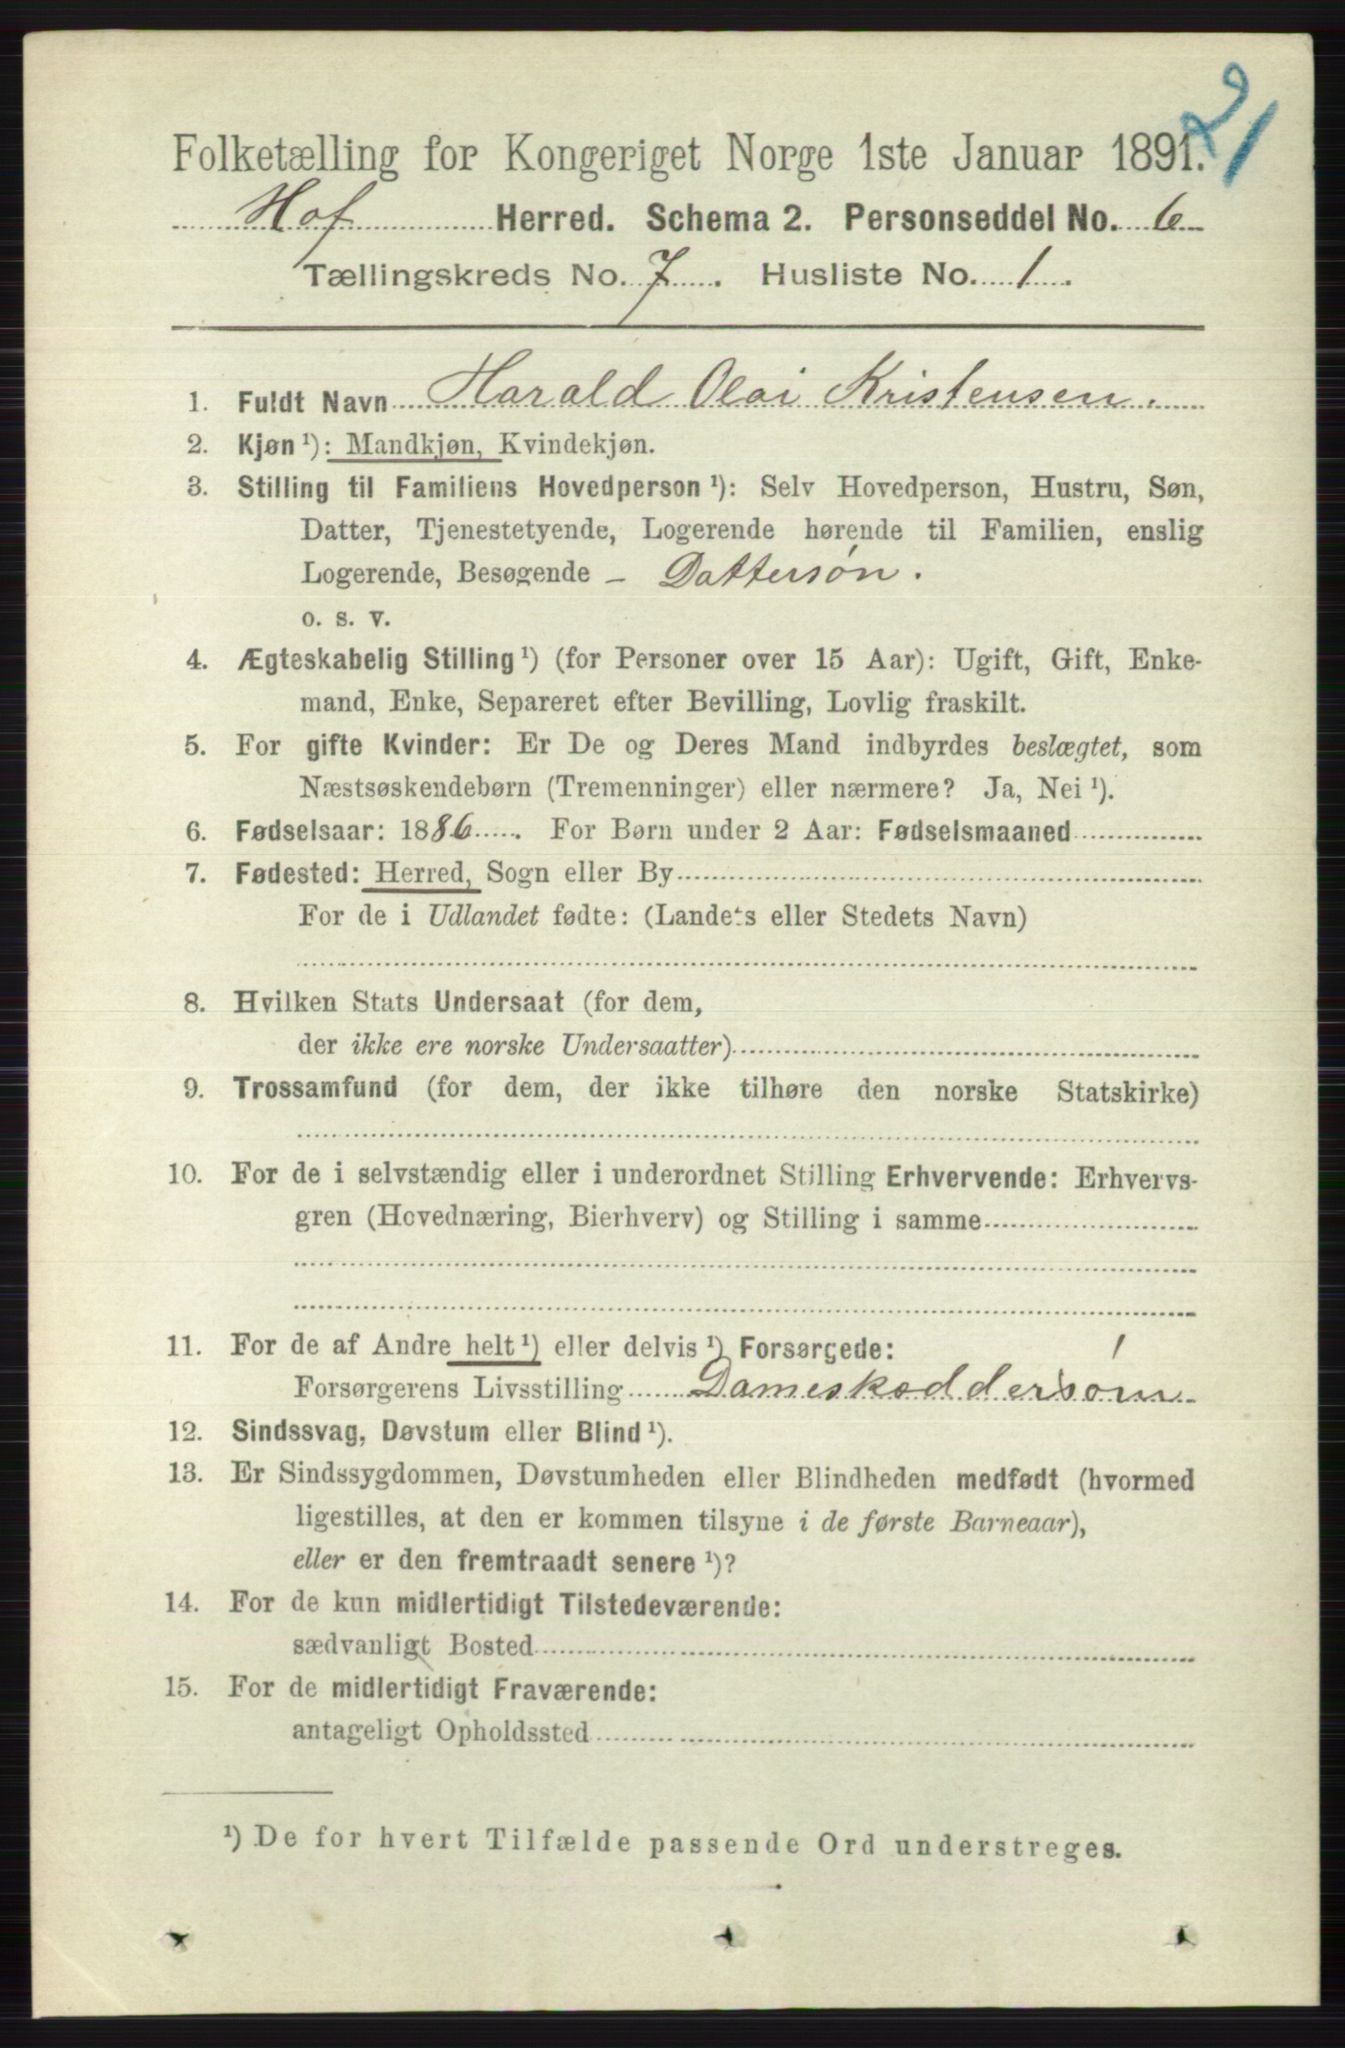 21
Folketælling for Kongeriget Norge 1ste Januar 1891.
Hof Herred. Schema 2. Personseddel No. 6
Tællingskreds No. 7. Husliste No. 1.
1. Fuldt Navn Harald Olai Kristensen.
2. Kjøn ¹): Mandkjøn, Kvindekjøn.
3. Stilling til Familiens Hovedperson ¹): Selv Hovedperson, Hustru, Søn,
Datter, Tjenestetyende, Logerende hørende til Familien, enslig
Logerende, Besøgende - Dattersøn.
o. s. v.
4. Ægteskabelig Stilling ¹) (for Personer over 15 Aar): Ugift, Gift, Enke-
mand, Enke, Separeret efter Bevilling, Lovlig fraskilt.
5. For gifte Kvinder: Er De og Deres Mand indbyrdes beslægtet, som
Næstsøskendebørn (Tremenninger) eller nærmere? Ja, Nei ¹).
6. Fødselsaar: 1886. For Børn under 2 Aar: Fødselsmaaned
7. Fødested: Herred, Sogn eller By
For de i Udlandet fødte: (Landets eller Stedets Navn)
8. Hvilken Stats Undersaat (for dem,
der ikke ere norske Undersaatter)
9. Trossamfund (for dem, der ikke tilhøre den norske Statskirke)
10. For de i selvstændig eller i underordnet Stilling Erhvervende: Erhvervs-
gren (Hovednæring, Bierhverv) og Stilling i samme
11. For de af Andre helt ¹) eller delvis ¹) Forsørgede:
Forsørgerens Livsstilling Dameskoddersøm
12. Sindssvag, Døvstum eller Blind ¹).
13. Er Sindssygdommen, Døvstumheden eller Blindheden medfødt (hvormed
ligestilles, at den er kommen tilsyne i de første Barneaar),
eller er den fremtraadt senere ¹)?
14. For de kun midlertidigt Tilstedeværende:
sædvanligt Bosted
15. For de midlertidigt Fraværende:
antageligt Opholdssted
¹) De for hvert Tilfælde passende Ord understreges.